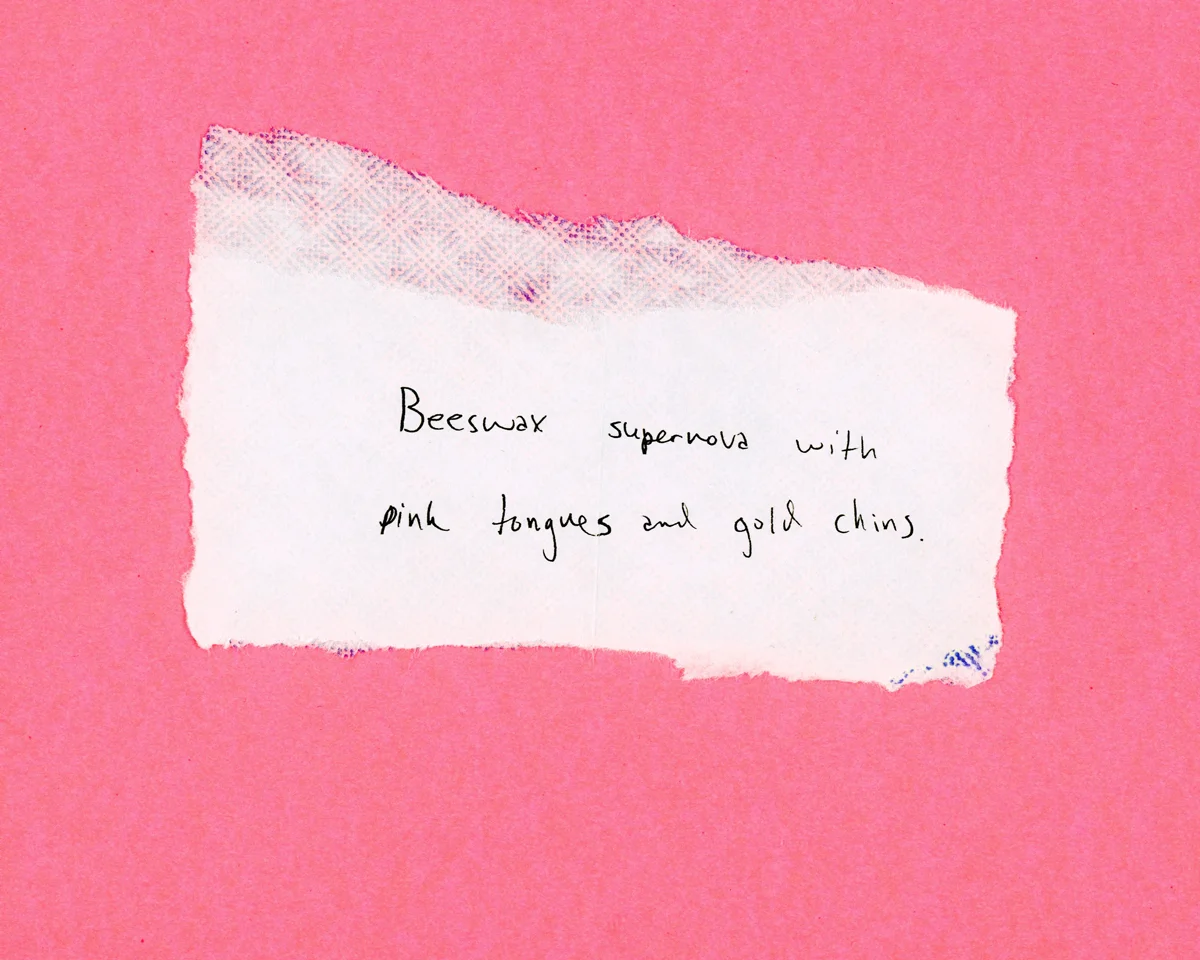 Beeswax supernova with
pink tongues and gold chins.